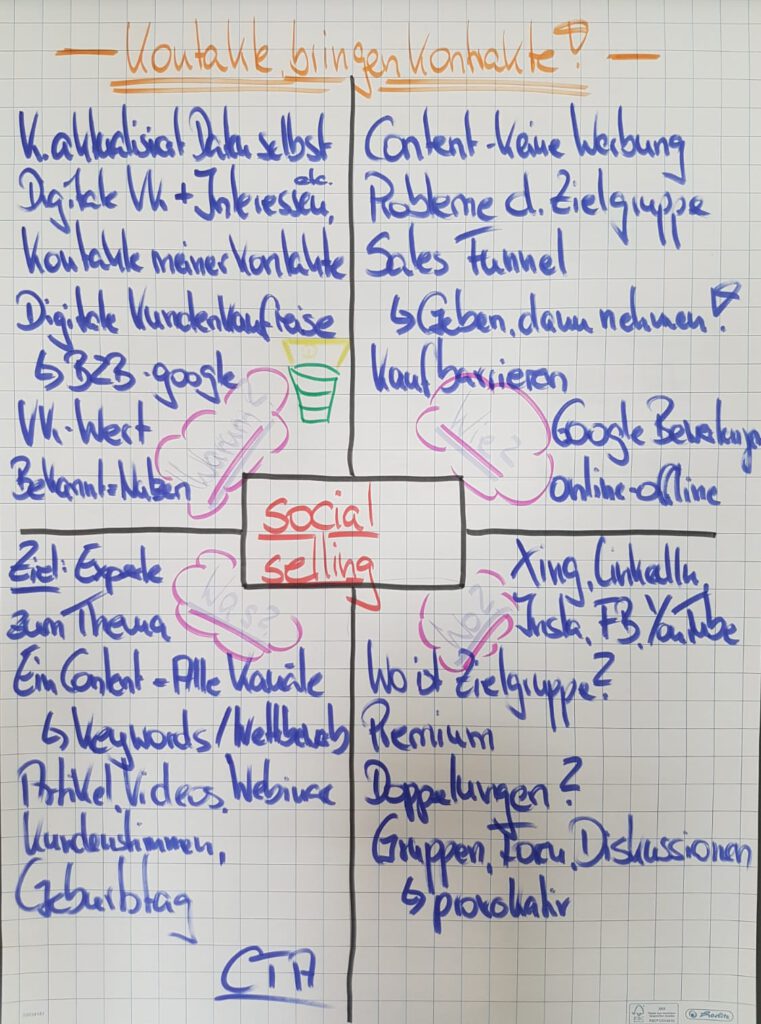 — Kontakte bringen Kontakte! —
K. aktualisiert Daten selbst
Digitale VK + Interessen, etc.
Kontakte meiner Kontakte
Digitale Kundenkaufreise
↳ B2B - google
VK-Wert
Bekannt = Nutzen
Warum?
Content - keine Werbung
Probleme d. Zielgruppe
Sales Funnel
↳ Geben, dann nehmen!
Kaufbarrieren
Wie?
Google Bewertung
online-offline
social
selling
Ziel: Experte
zum Thema
Was?
Ein Content = Alle Kanäle
↳ Keywords / Wettbewerb
Artikel, Videos, Webinare
Kundenstimmen,
Geburtstag
CTA
Wo?
Xing, LinkedIn,
Insta, FB, YouTube
Wo ist Zielgruppe?
Premium
Doppelungen?
Gruppen, Foren, Diskussionen
↳ provokativ
FSC